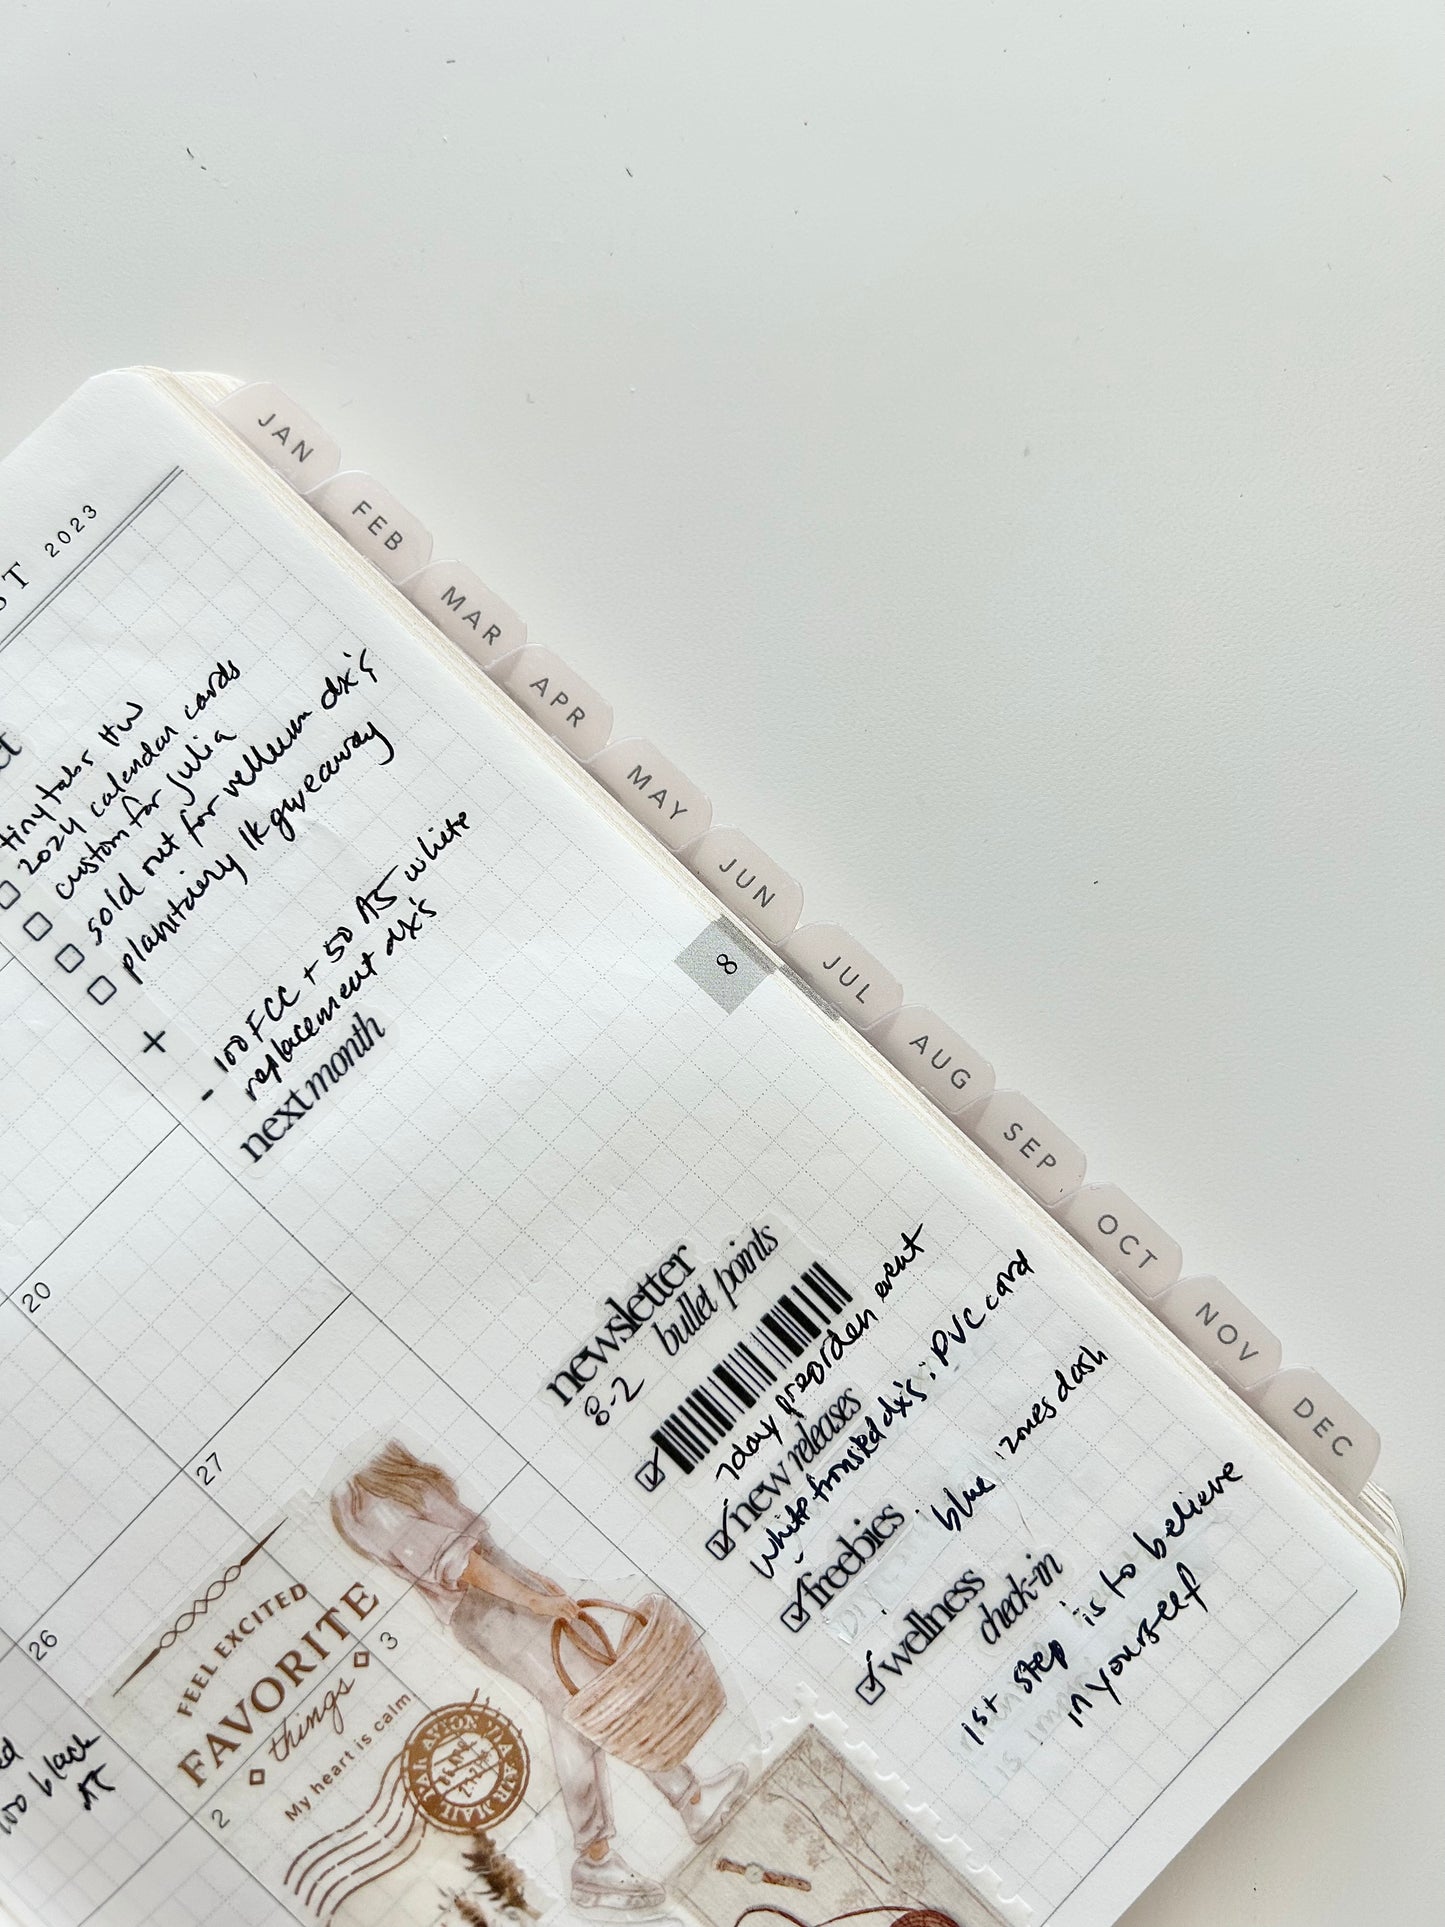 2023
tiny tabs HW
2024 calendar cards
custom for Julia
sold out for vellum dx's
planitairy 1k giveaway
+
- 100 FCC + 50 A5 white
replacement dx's
next month
8
20
27
26
3
2
newsletter
bullet points
8-2
7 day preorder event
new releases
white frosted dx's: PVC card
freebies
blue zones dash
wellness
check-in
1st step is to believe
in yourself
FEEL EXCITED
FAVORITE
things
My heart is calm
PAR AVION
100 black
JAN
FEB
MAR
APR
MAY
JUN
JUL
AUG
SEP
OCT
NOV
DEC